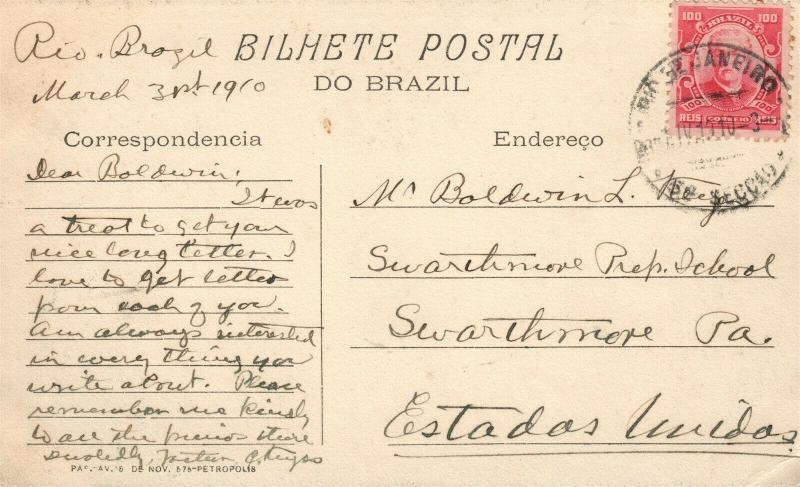 Rio. Brazil
March 31st 1910
BILHETE POSTAL
DO BRAZIL
100 BRAZIL 100
100 100
REIS CORREIO REIS
RIO DE JANEIRO
SECÇÃO
Correspondencia
Dear Boldwin:
It was
a treat to get your
nice long letter. I
love to get letters
from each of you.
Am always interested
in every thing you
write about. Please
remember me kindly
to all the friends there
PAP.-AV. 15 DE NOV. 576-PETROPOLIS
Endereço
Mr Boldwin L.
Swarthmore Prep. School
Swarthmore Pa.
Estados Unidos.